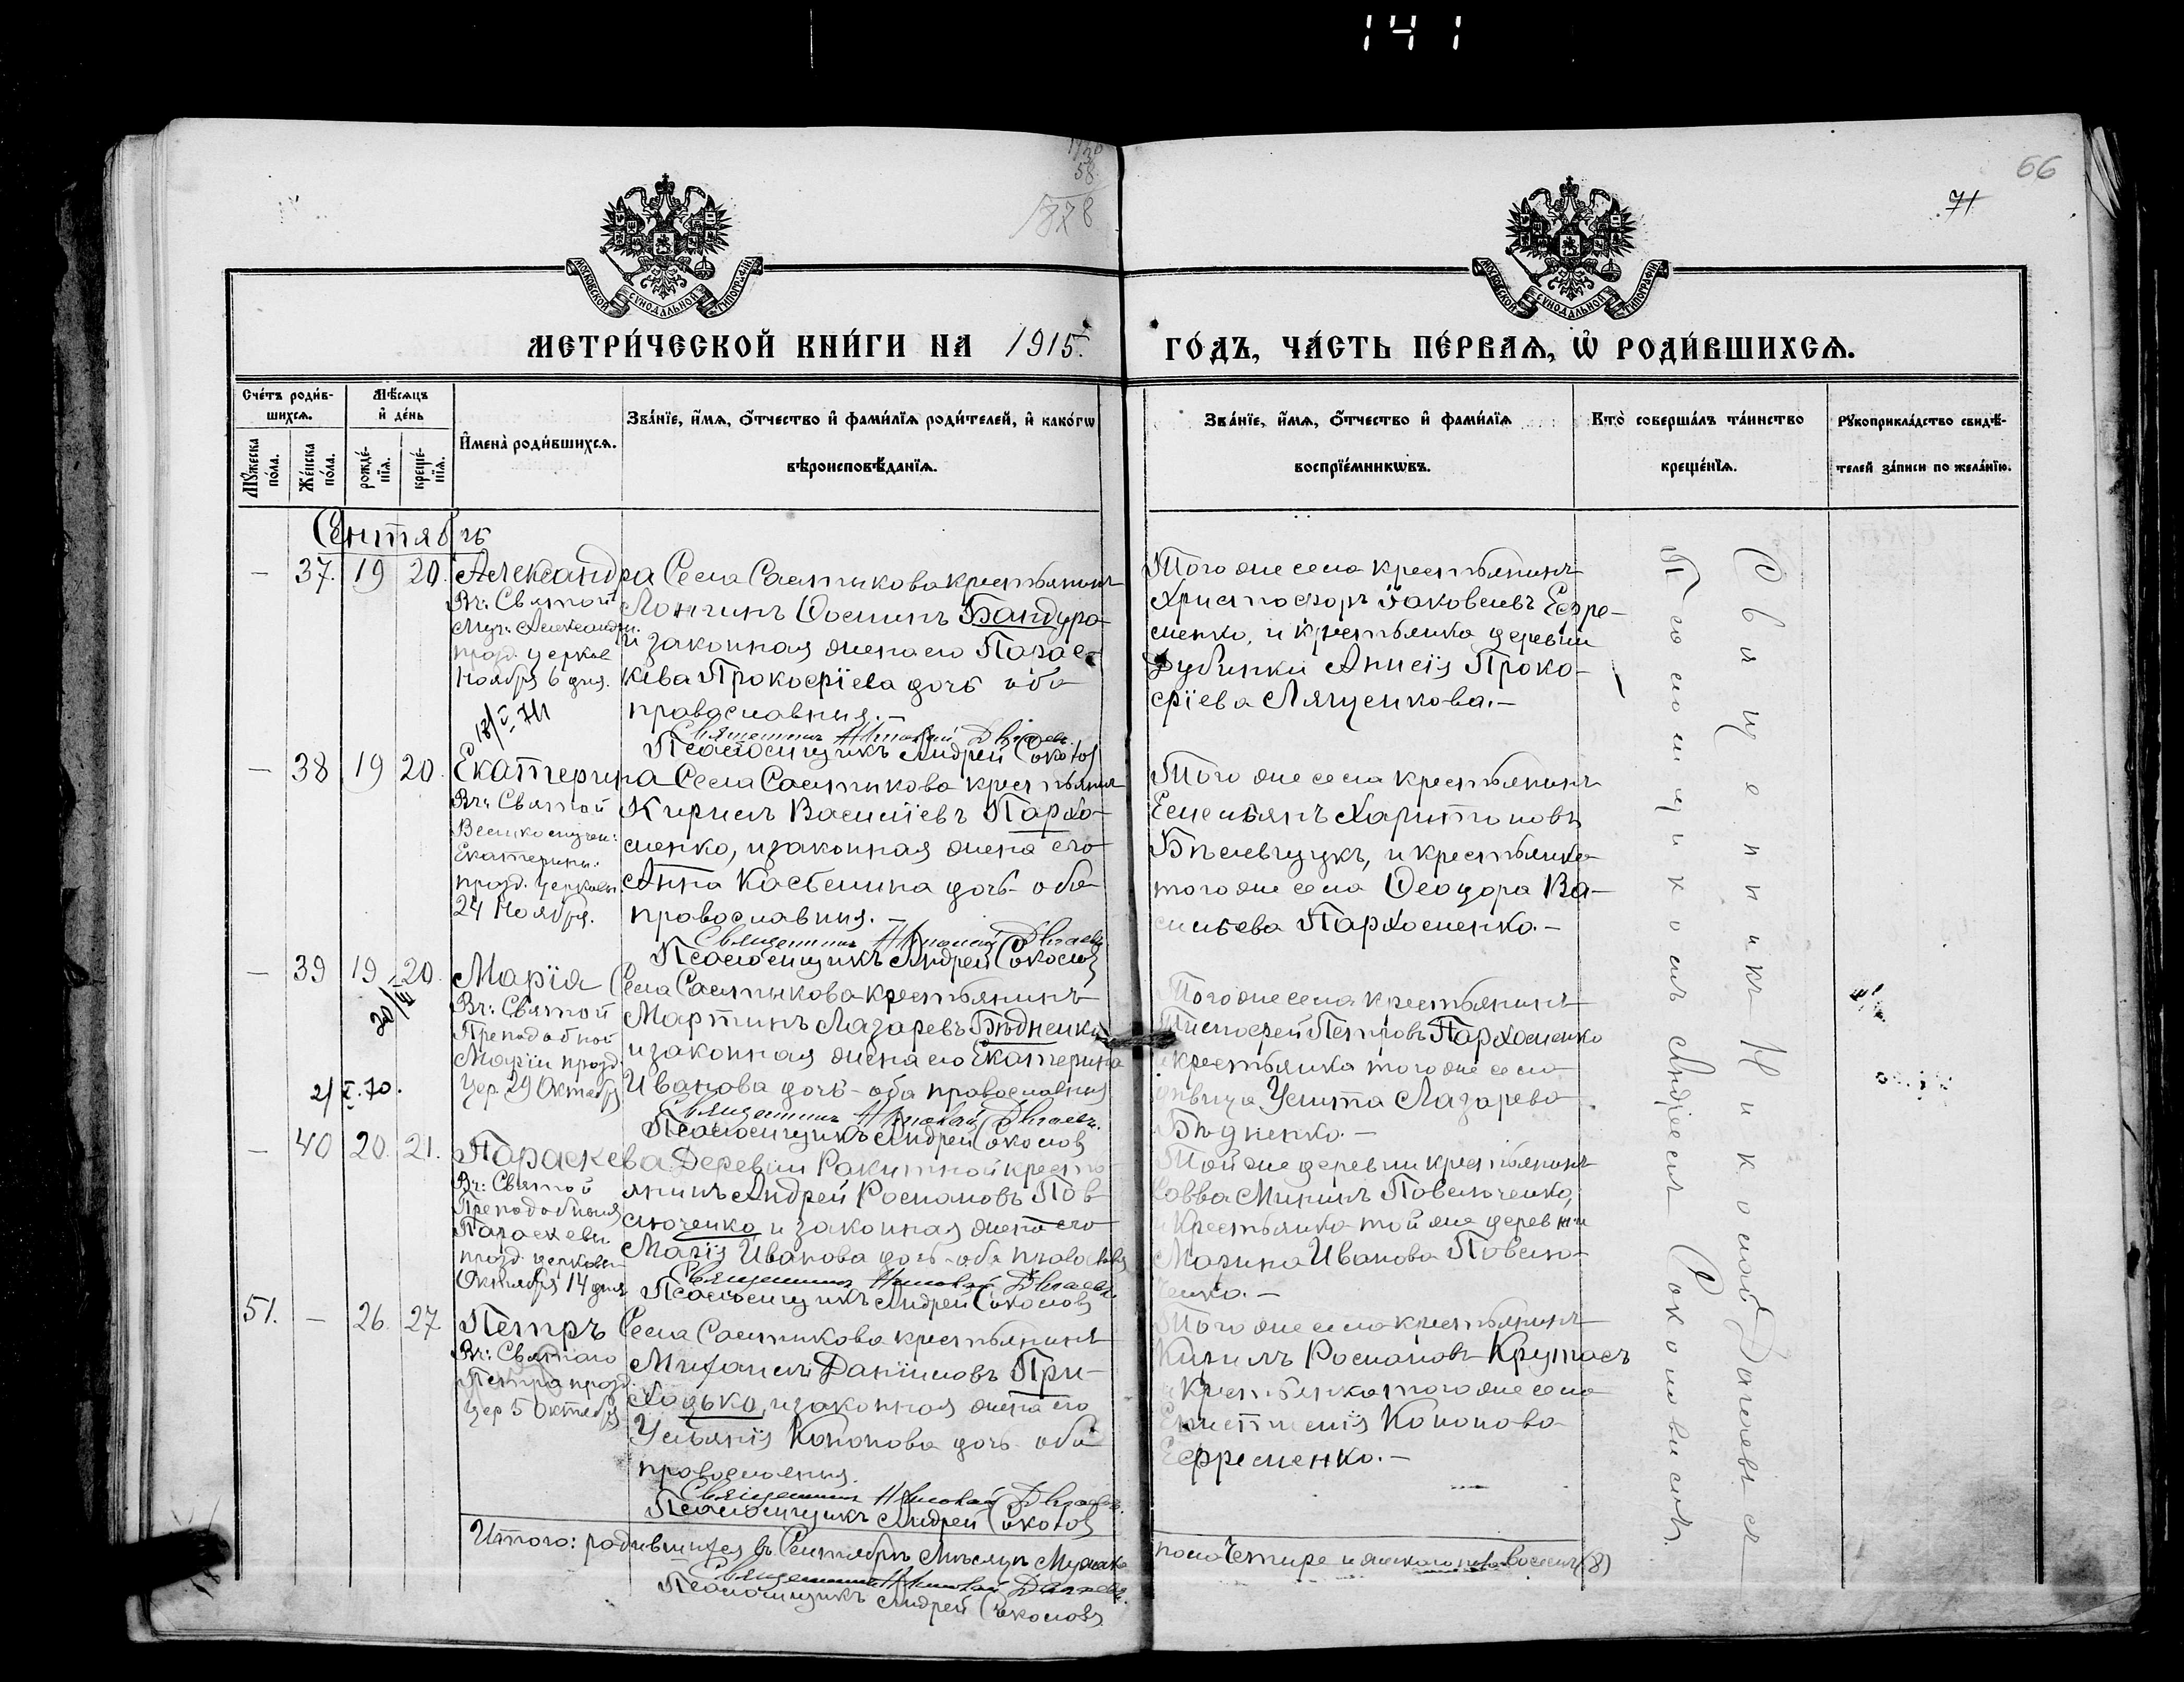 141
66
71
58
1878
МОСКОВСКОЙ СѴНОДАЛЬНОЙ ТИПОГРАФІИ
МОСКОВСКОЙ СѴНОДАЛЬНОЙ ТИПОГРАФІИ
МЕТРИ́ЧЕСКОЙ КНИ́ГИ НА 1915. ГО́ДЪ, ЧА́СТЬ ПЕ́РВАѦ, Ѡ҆ РОДИ́ВШИХСѦ.
Сче́тъ роди́в-
шихсѧ.
Мѣ́сѧцъ
и҆ де́нь
Мꙋ́жеска
по́ла.
Же́нска
по́ла.
рожде́-
нїѧ.
креще́-
нїѧ.
И҆мена̀ роди́вшихсѧ.
Зва́нїе, и҆́мѧ, ѻ҆́тчество и҆ фами́лїѧ роди́телей, и҆ како́гѡ
вѣроисповѣ́данїѧ.
Зва́нїе, и҆́мѧ, ѻ҆́тчество и҆ фами́лїѧ
воспрїе́мникѡвъ.
Кто̀ соверша́лъ та́инство
креще́нїѧ.
Рꙋкоприкла́дство свидѣ́-
телей за́писи по жела́нїю.
Сентябрь
— 37. 19 20. Александра
Въ: Святой
Муч. Александры.
празд. церков
Ноября 6 дня.
18/V 741
Села Салтыкова крестьянинъ
Лонгинъ Ѳоминъ Бандура
и законная жена его Парас-
кева Прокофіева дочь оба
православныя.—
Священникъ Николай Двигаевъ.
Псаломщикъ Андрей Соколов
Того же села крестьянинъ
Христофоръ Іаковлевъ Ефре-
менко, и крестьянка деревни
Дубинки Анисія Проко-
фіева Лященкова.—
— 38 19 20. Екатерина
Въ: Святой
Великомучен:
Екатерины.
празд. церковью
24 Ноября.
Села Салтыкова крестьянинъ
Кирилъ Василіевъ Пархо-
менко, и законная жена его
Анна Касьянина дочь оба
православныя.—
Священникъ Николай Двигаевъ
Псаломщикъ Андрей Соколов
Того же села крестьянинъ
Емельянъ Харитоновъ
Бѣлевцукъ, и крестьянка
того же села Ѳеодора Ва-
сильева Пархоменко.—
— 39 19 20. Марія
20/III
Въ: Святой
Преподобной
Маріи празд.
Цер. 29 Октября
2/X.70.
Села Салтыкова крестьянинъ
Мартинъ Лазаревъ Бѣдненко
и законная жена его Екатерина
Иванова дочь - оба православныя
Священникъ Николай Двигаевъ.
Псаломщикъ Андрей Соколов
Того же села крестьянинъ
Тимофей Петровъ Пархоменко
и крестьянка того же села
дѣвица Улита Лазарева
Бѣдненко.—
— 40 20. 21. Параскева
Въ: Святой
Преподобныя
Параскевы
празд. церковью
Октября 14 дня
Деревни Ракитной кресть-
янинъ Андрей Романовъ Пов-
люченко и законная жена его
Марія Иванова дочь - оба православн
Священникъ Николай Двигаевъ
Псаломщикъ Андрей Соколовъ
Той же деревни крестьянинъ
Савва Мининъ Повлюченко,
и Крестьянка той же деревни
Марина Иванова Повлю-
ченко.—
51. — 26. 27 Петръ
Въ: Святаго
Петра празд.
Цер 5 Октября
Села Салтыкова крестьянинъ
Михаилъ Даніиловъ При-
ходько, и законная жена его
Ульянія Кононова дочь оба
православныя.
Священникъ Николай Двигаевъ.
Псаломщикъ Андрей Соколов
Того же села крестьянинъ
Кирилъ Романовъ Крутасъ
и Крестьянка того же села
Кононова
Ефременко.—
Священникъ Николай
Псаломщикомъ Андреемъ Соколовымъ.
Итого: родившихся въ Сентябрѣ мѣсяцѣ Мужска
пола Четыре и женскаго пола Восемь (8)
Священникъ Николай
Псаломщикъ Андрей Соколовъ